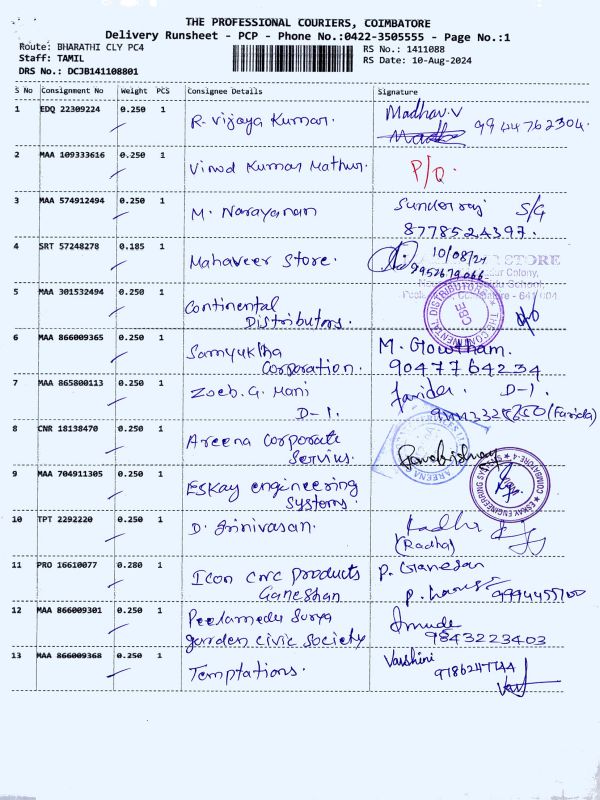 THE PROFESSIONAL COURIERS, COIMBATORE
Delivery Runsheet - PCP - Phone No.:0422-3505555 - Page No.:1
Route: BHARATHI CLY PC4
Staff: TAMIL
DRS No.: DCJB141108801
RS No.: 1411088
RS Date: 10-Aug-2024
S No Consignment No Weight PCS Consignee Details Signature
1 EDQ 22309224 0.250 1 R. Vijaya Kumar. Madhav.V 9944762304.
2 MAA 109333616 0.250 1 Vinod Kumar Mathur. P/Q.
3 MAA 574912494 0.250 1 M. Narayanan Sunderraj S/G
8778524397.
4 SRT 57248278 0.185 1 Mahaveer Store. 10/08/24
9952679066
STORE
Colony,
School,
5 MAA 301532494 0.250 1 Continental
Distributors.
THE CONTINENTAL DISTRIBUTORS
CBE
6 MAA 866009365 0.250 1 Samyuktha
Corporation.
M. Gowtham.
9047764234
7 MAA 865800113 0.250 1 Zoeb. G. Mani
D-1.
Farida. D-1.
(Farida)
8 CNR 18138470 0.250 1 Areena Corporate
Servius.
Ramakrishnan
AREENA
9 MAA 704911305 0.250 1 Eskay engineering
Systems.
ESKAY ENGINEERING SYSTEMS
COIMBATORE-4
10 TPT 2292220 0.250 1 D. Srinivasan. Radha
(Radha)
11 PRO 16610077 0.280 1 Icon cnc products
Ganeshan
P. Ganesan
12 MAA 866009301 0.250 1 Peelamedu Surya
garden civic society
9843223403
13 MAA 866009368 0.250 1 Temptations. Varshini